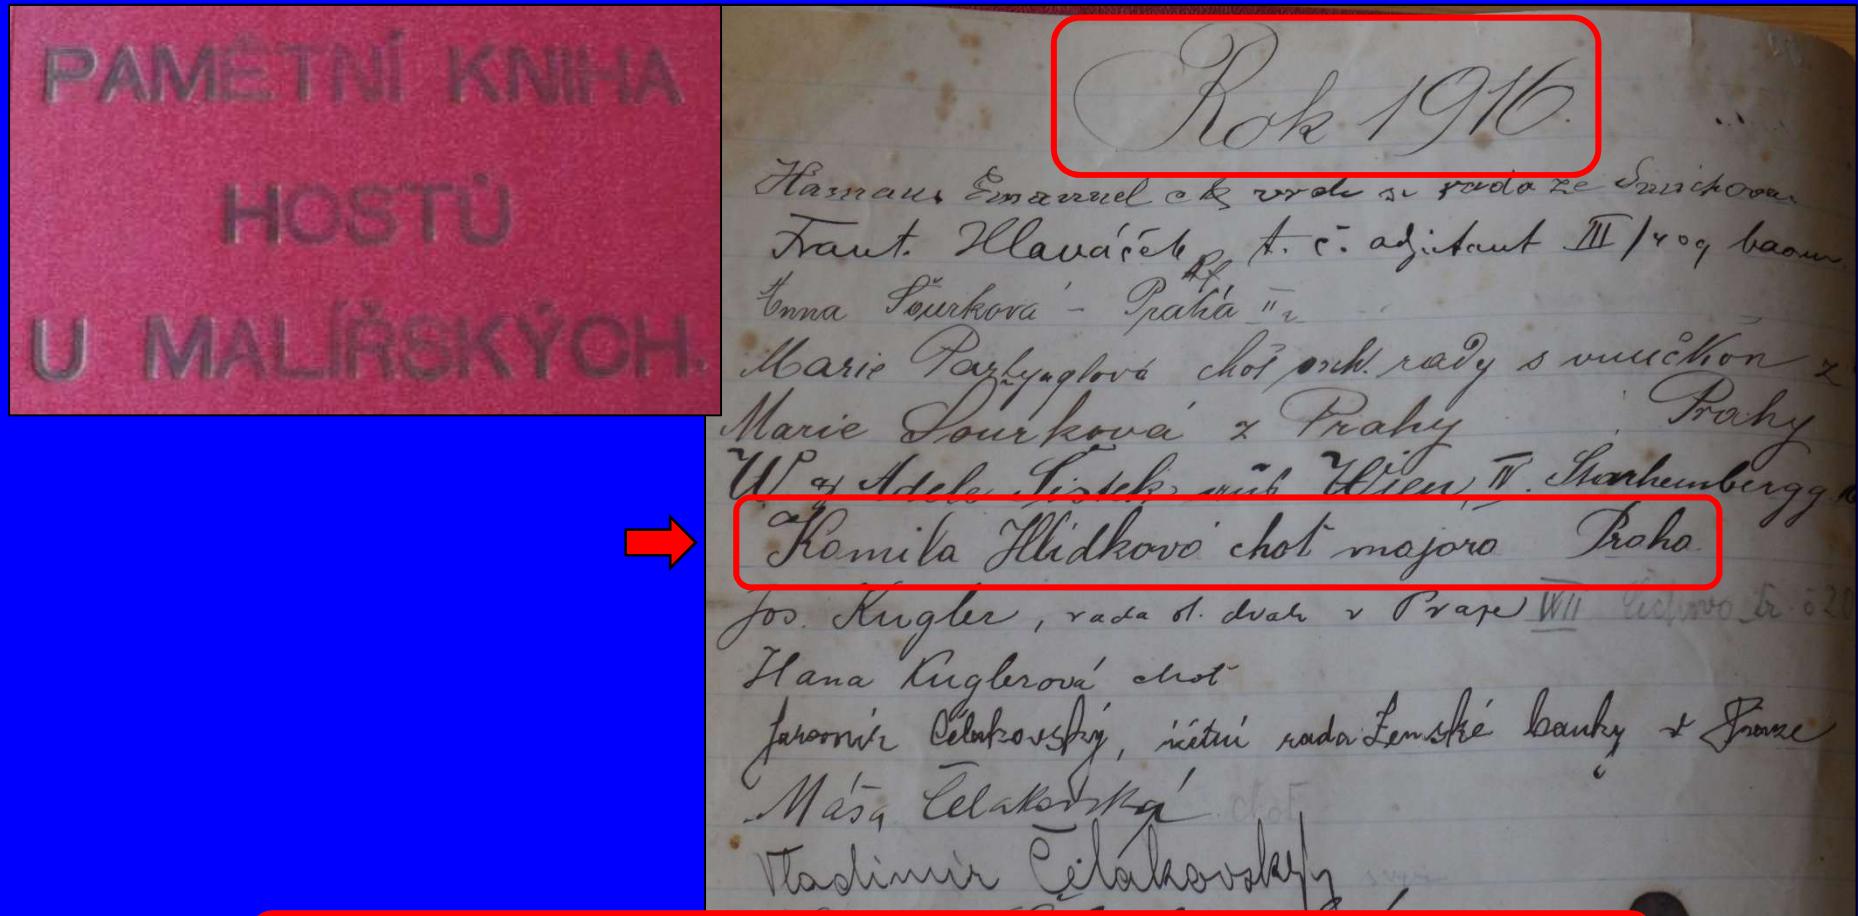 PAMĚTNÍ KNIHA
HOSTŮ
U MALÍŘSKÝCH.
Rok 1916.
Emanuel rada ze Smíchova
Frant. Hlaváček, t. č. adjutant III/409 baonu
Anna Šourková - Praha II
Marie choť rady s vnučkou z
Prahy
Marie Šourková z Prahy
Adele Šistek Wien, IV. Starhembergg
Kamila Hlídková choť majora Praha
Jos. Kugler, rada v Praze VII č 20
Hana Kuglerová choť
Jaromír Čelakovský, účetní rada Zemské banky v Praze
Máša Čelakovská choť
Vladimír Čelakovský syn